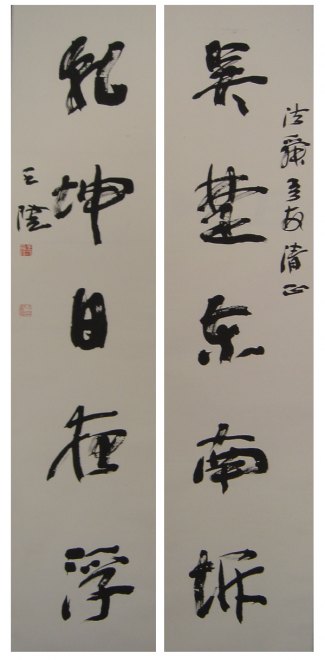 吾友清正
吴楚东南坼
乾坤日夜浮
王澄